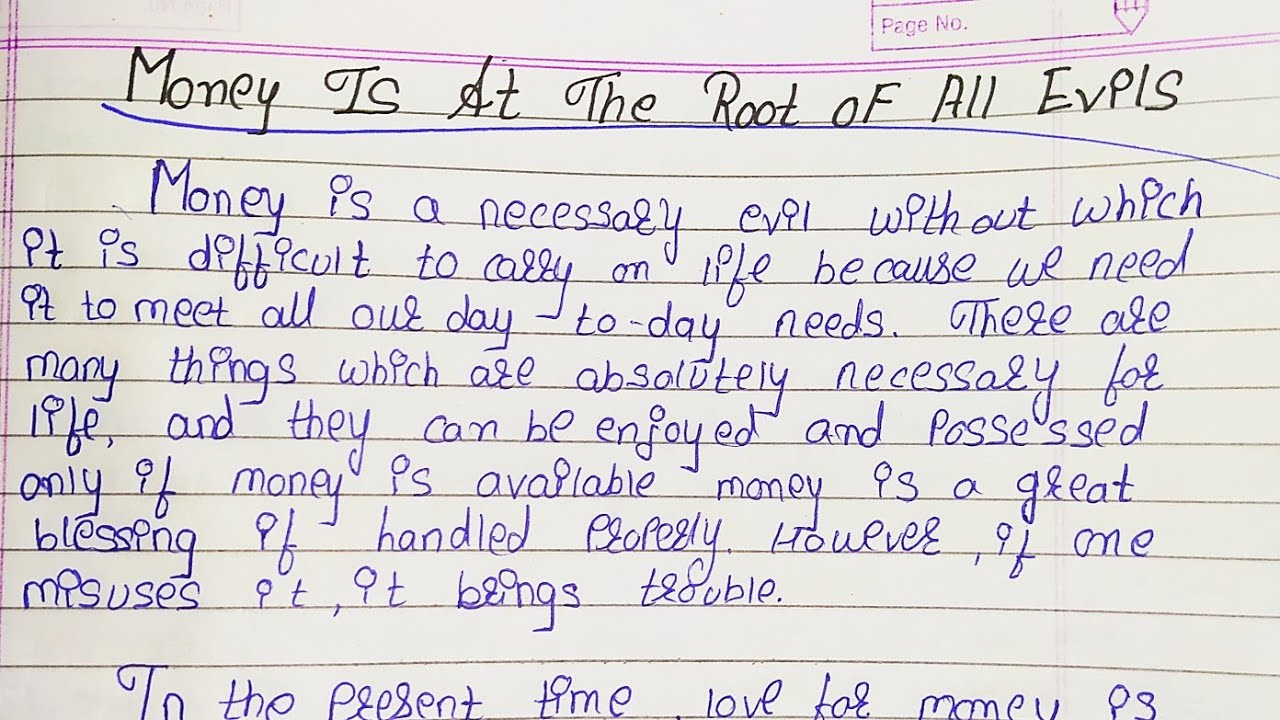 Page No.
Money Is At The Root of All Evils
Money is a necessary evil without which
it is difficult to carry on life because we need
it to meet all our day-to-day needs. There are
many things which are absolutely necessary for
life, and they can be enjoyed and possessed
only if money is available money is a great
blessing if handled properly. However, if one
misuses it, it brings trouble.
In the present time, love for money is